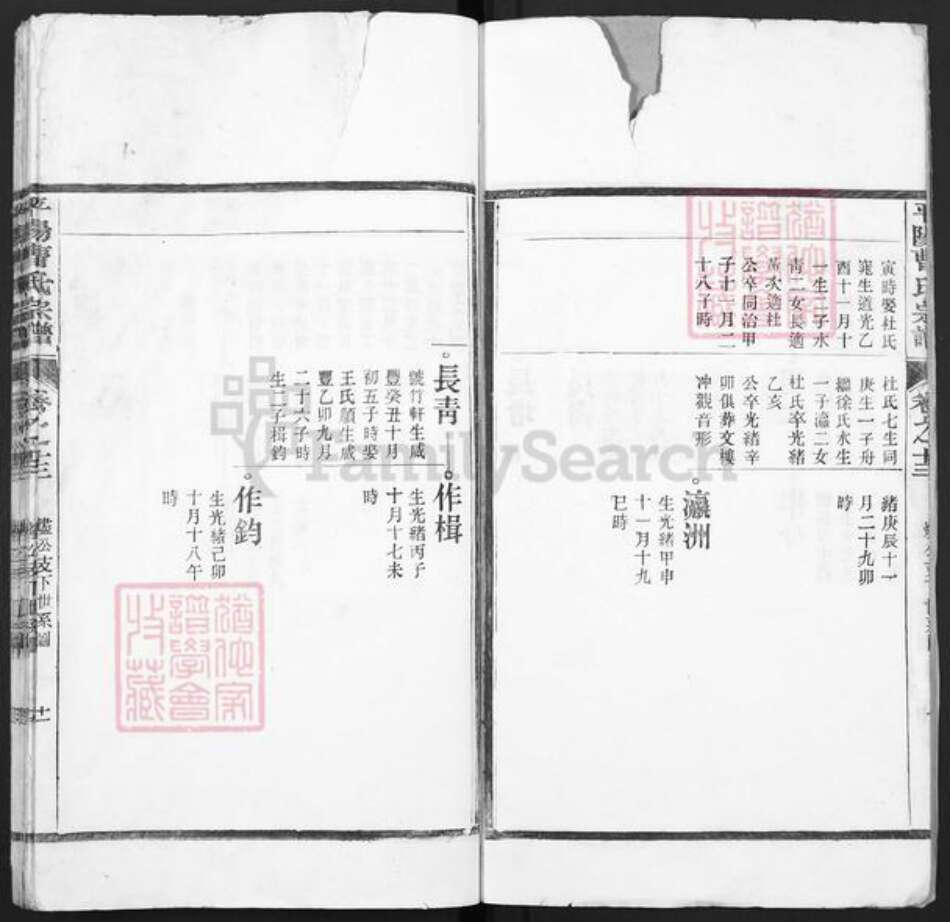 平陽曹氏宗譜
卷之十三
寅時娶杜氏
寔生道光乙
酉十一月十
一生二子水
青二女長適
黃次適杜
公卒同治甲
子十一月二
十八子時
杜氏七生同
庚生一子舟
繼徐氏水生
一子瀛二女
杜氏卒光緒
乙亥
公卒光緒辛
卯俱葬文樓
冲觀音形
緒庚辰十一
月二十九卯
時
瀛洲
生光緒甲申
十一月十九
巳時
長青
號竹軒生咸
豐癸丑十月
初五子時娶
王氏願生咸
豐乙卯九月
二十六子時
生二子楫鈞
作楫
生光緒丙子
十月十七未
時
作鈞
生光緒己卯
十月十八午
時
平陽曹氏宗譜
卷之十三
公支下世系圖
十一
猶他家
譜學會
收藏
猶他家
譜學會
收藏
FamilySearch